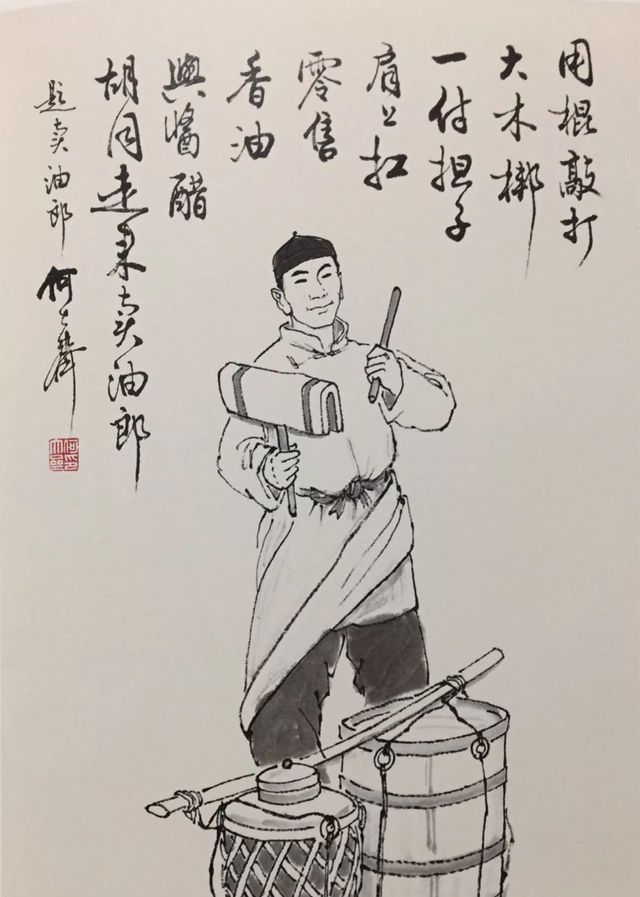 用棍敲打
大木梆
一付担子
肩上扛
零售
香油
與醬醋
胡同走来卖油郎
题卖油郎 何大齊